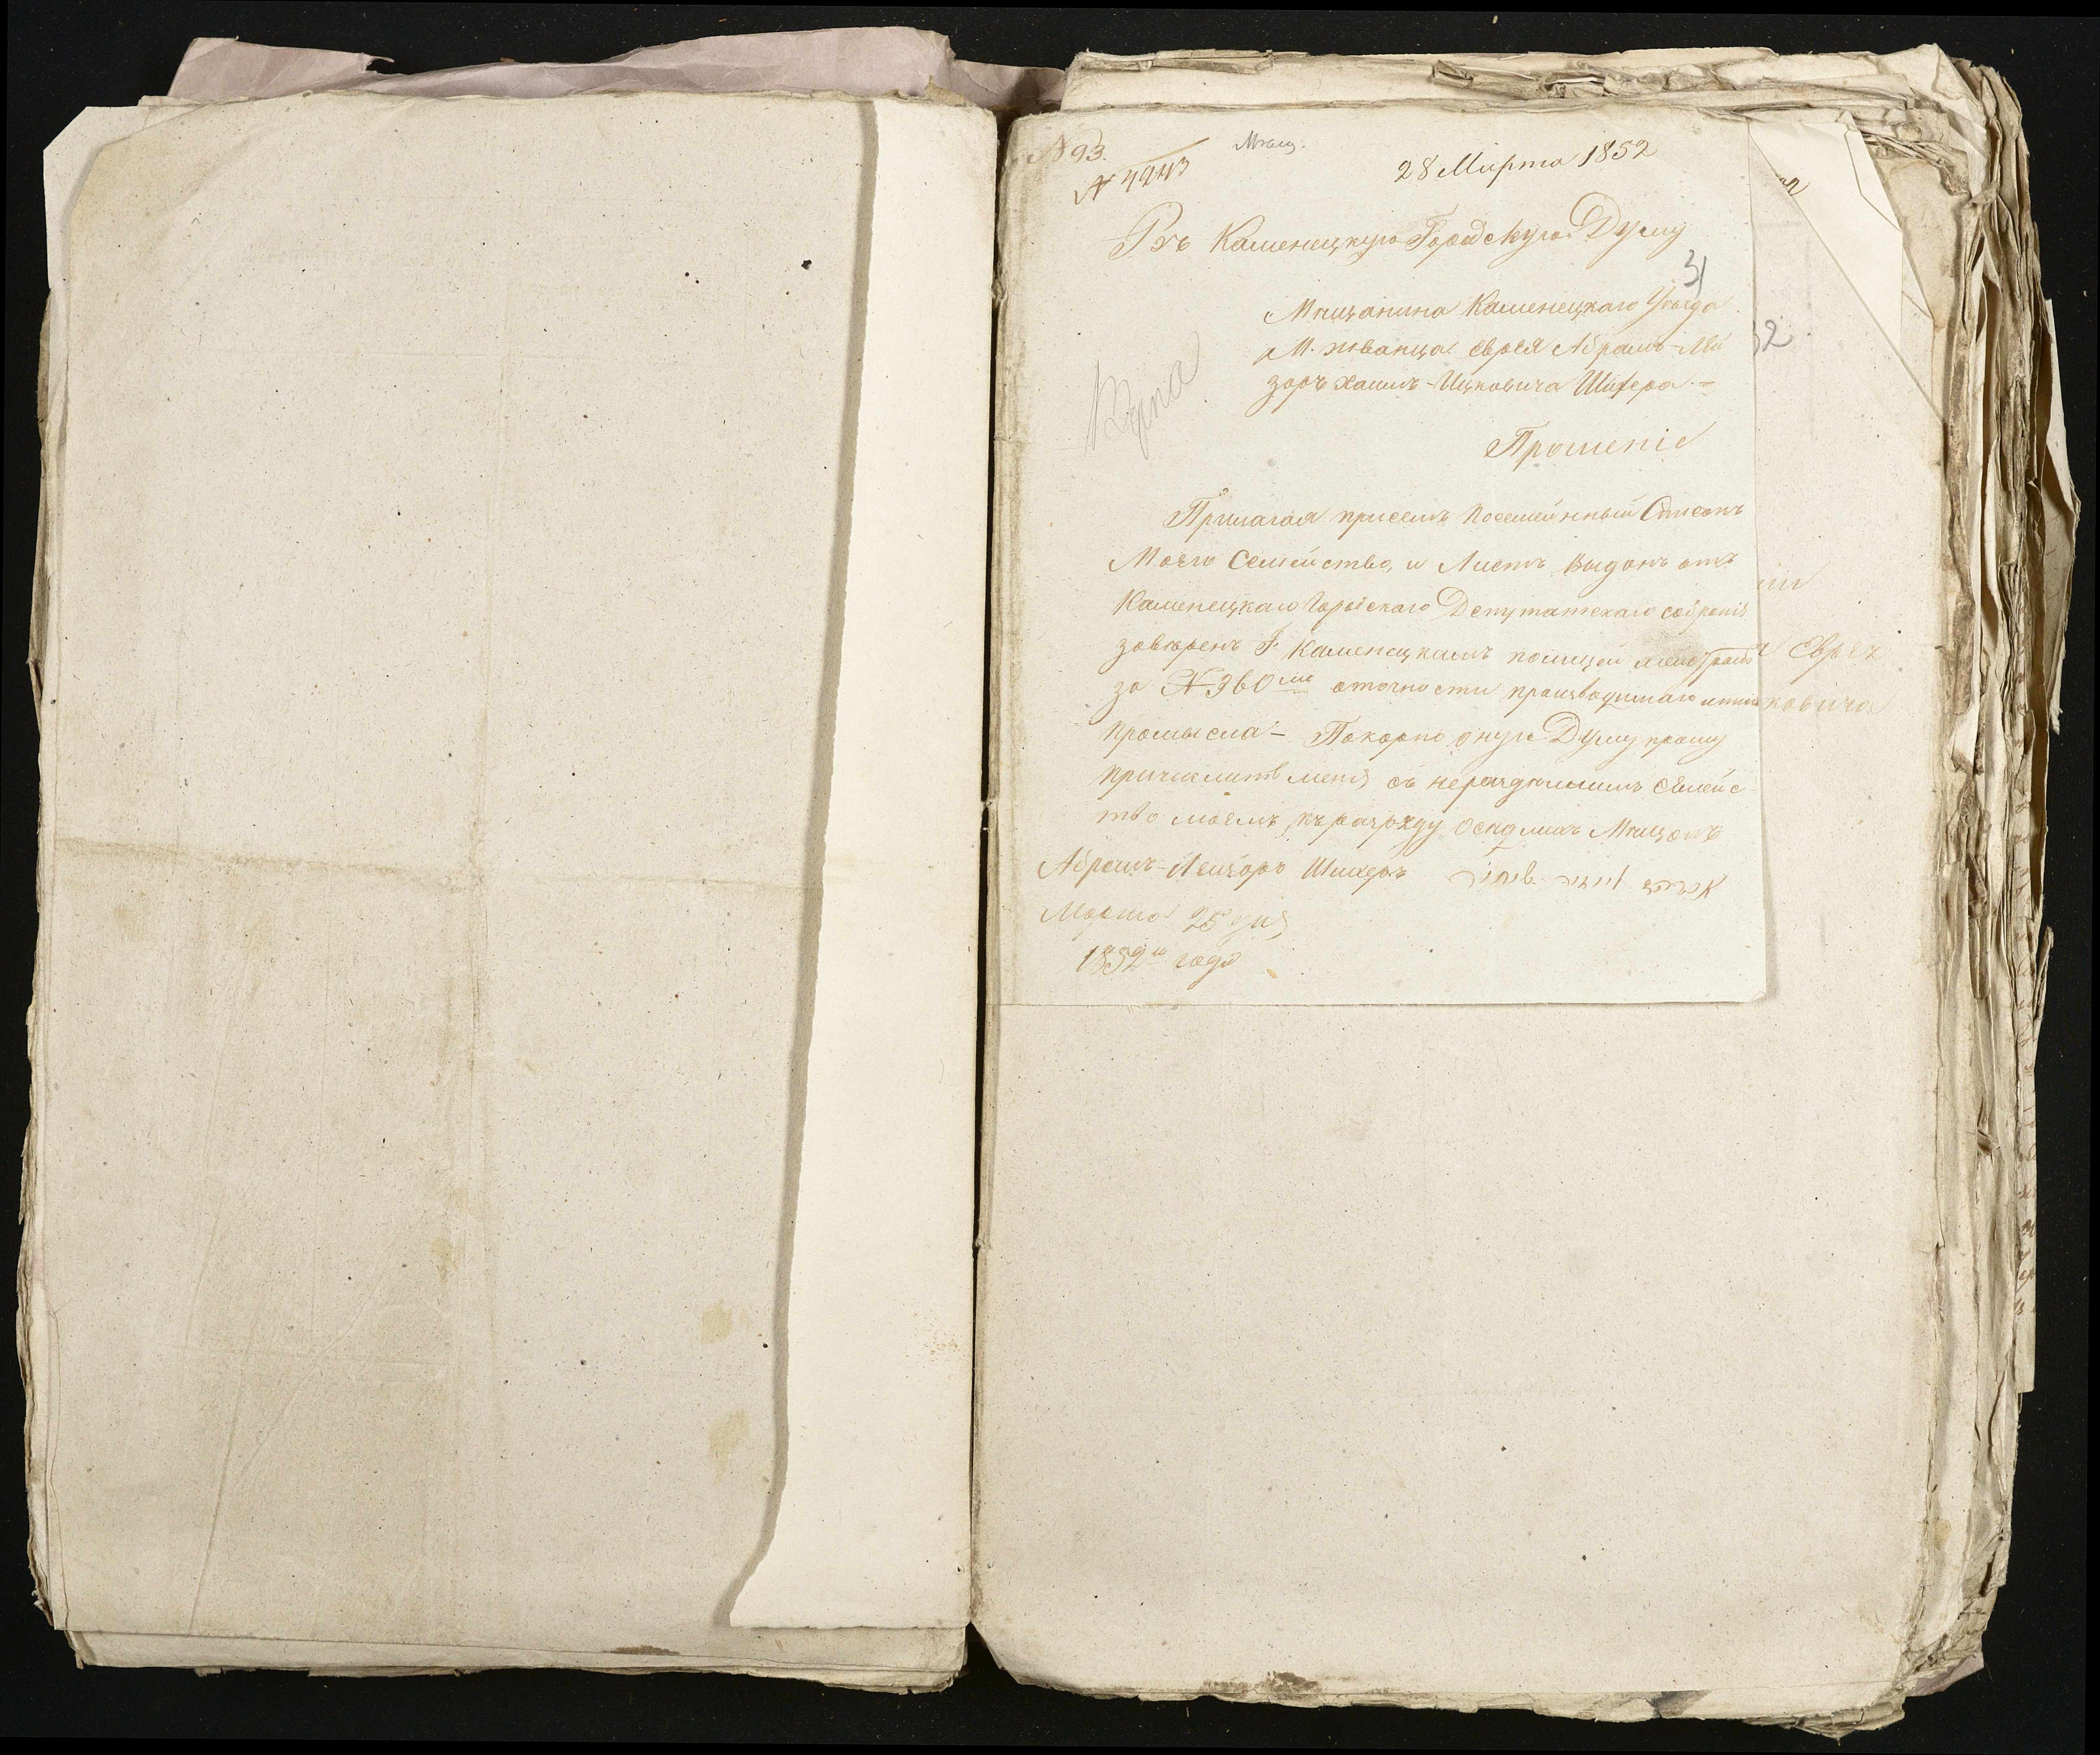 N 93.
N 4243
Мѣщ.
28 Марта 1852
Въ Каменецкую Городскую Думу
31
Мѣщанина Каменецкаго Уѣзда
М. жванца Еврея Абрамъ-Лей
зоръ хаимъ-Ицковича Шихера. =
Прошеніе
Прилагая присемъ Посемейнный Списокъ
Моего Семейство, и Листъ выданъ отъ
Каменецкаго Городскаго Депутатскаго собранія
завѣренъ Г. Каменецкимъ
за N 360 оточности производимаго
промысла - Покорно оную Думу прошу
причислить меня съ нераздѣльнимъ Семейс-
тво моемъ къ разряду осѣдлихъ Мѣщанъ
Абрамъ-Лейзоръ Шихеръ
Марта 25 дня
1852го года
32
Еврея
ковича